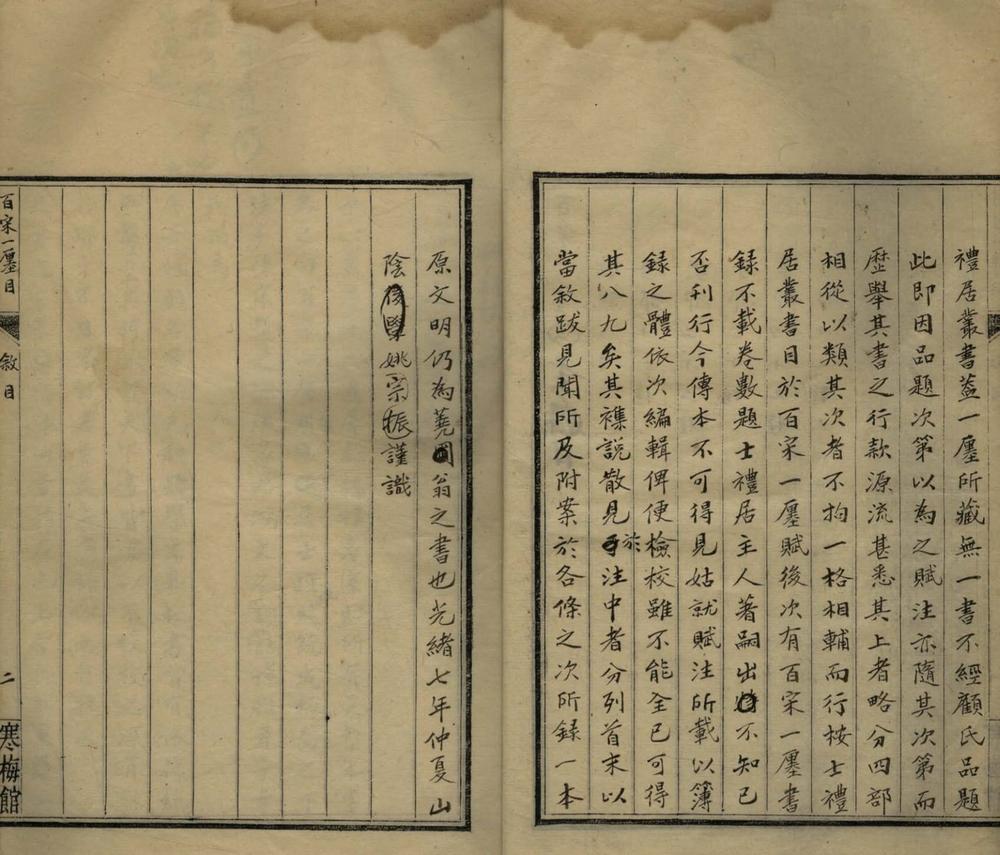 禮居叢書葢一廛所藏無一書不經顧氏品題
此即因品題次第以為之賦注亦隨其次第而
歷舉其書之行款源流甚悉其上者略分四部
相從以類其次者不拘一格相輔而行桉士禮
居叢書目於百宋一廛賦後次有百宋一廛書
錄不載卷數題士禮居主人著嗣出不知已
否刊行今傳本不可得見姑就賦注所載以簿
錄之體依次編輯俾便檢校雖不能全已可得
其八九矣其襍說散見於注中者分列首末以
當敘跋見聞所及附案於各條之次所錄一本
原文明仍為蕘翁之書也光緒七年仲夏山
陰姚宗振謹識
百宋一廛目
敘目
二
寒梅館